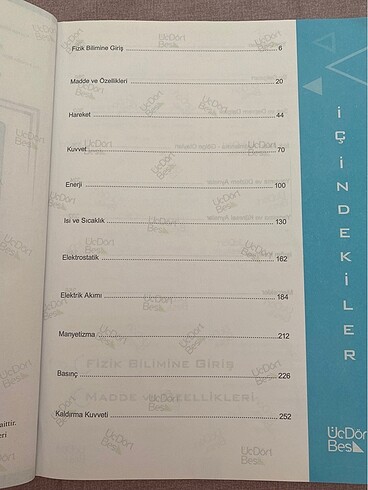 İÇİNDEKİLER
Fizik Bilimine Giriş 6
Madde ve Özellikleri 20
Hareket 44
Kuvvet 70
Enerji 100
Isı ve Sıcaklık 130
Elektrostatik 162
Elektrik Akımı 184
Manyetizma 212
FİZİK BİLİMİNE GİRİŞ
Basınç 226
MADDE VE ÖZELLİKLERİ
Kaldırma Kuvveti 252
ÜçDört
Beş
aittir.
eri